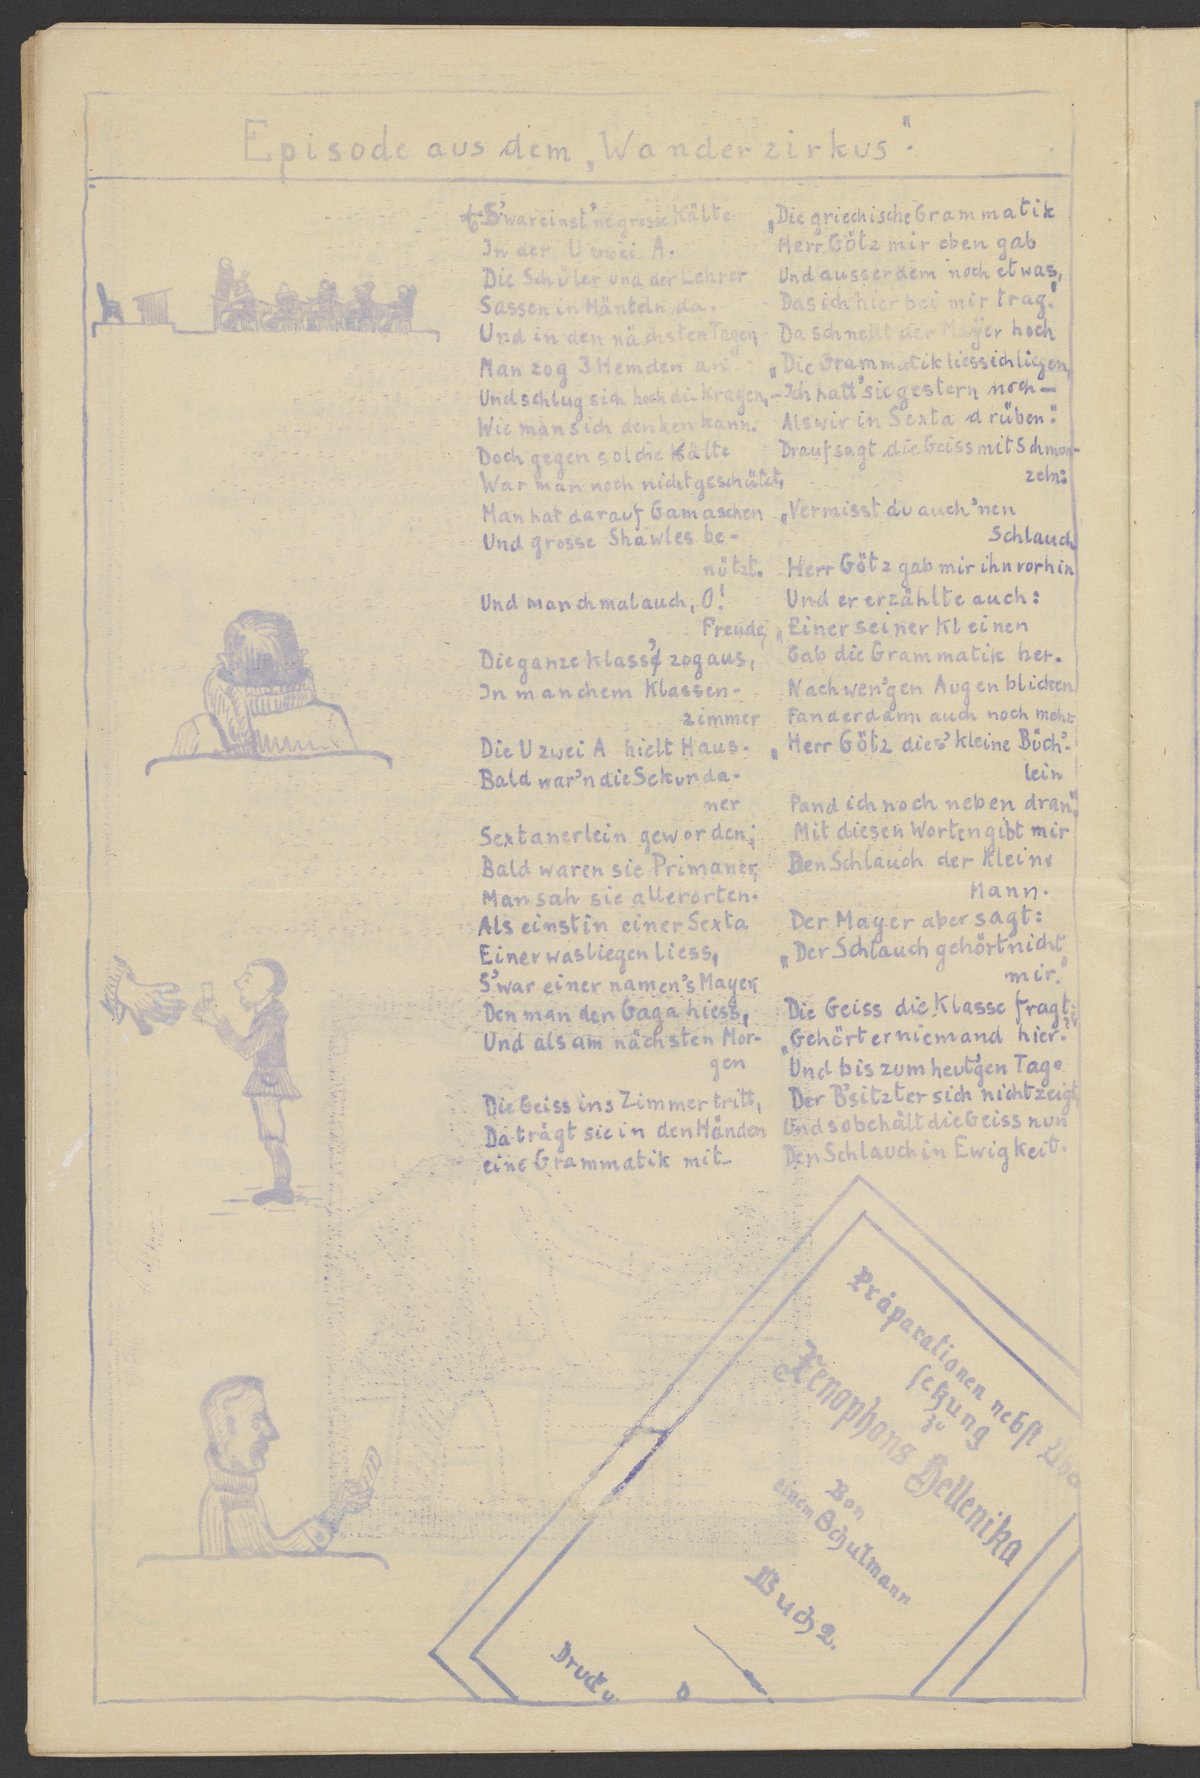 Episode aus dem „Wanderzirkus".
S'war einst 'ne grosse Kälte
In der U zwei A.
Die Schüler und der Lehrer
Sassen in Mänteln da.
Und in den nächsten Tagen
Man zog 3 Hemden an
Und schlug sich hoch die Kragen,
Wie man sich denken kann.
Doch gegen solche Kälte
War man noch nicht geschützt,
Man hat darauf Gamaschen
Und grosse Shawles be-
nützt.
Und manchmal auch, O!
Freude,
Die ganze Klass' zog aus,
In manchem Klassen-
zimmer
Die U zwei A hielt Haus.
Bald war'n die Sekunda-
ner
Sextanerlein geworden;
Bald waren sie Primaner,
Man sah sie allerorten.
Als einst in einer Sexta
Einer was liegen liess,
S'war einer namen's Mayer,
Den man den Gaga hiess,
Und als am nächsten Mor-
gen
Die Geiss ins Zimmer tritt,
Da trägt sie in den Händen
eine Grammatik mit.
„Die griechische Grammatik
Herr Götz mir eben gab
Und ausserdem noch etwas,
Das ich hier bei mir trag."
Da schnellt der Mayer hoch
„Die Grammatik liess ich liegen,
– Ich hatt' sie gestern noch –
Als wir in Sexta drüben."
Drauf sagt die Geiss mit Schmun-
zeln:
„Vermisst du auch 'nen
Schlauch
Herr Götz gab mir ihn vorhin
Und er erzählte auch:
„Einer seiner Kleinen
Gab die Grammatik her.
Nach wen'gen Augenblicken
Fand er dann auch noch mehr
„Herr Götz dies' kleine Büch'-
lein
Fand ich noch neben dran."
Mit diesen Worten gibt mir
Den Schlauch der kleine
Mann.
Der Mayer aber sagt:
„Der Schlauch gehört nicht
mir."
Die Geiss die Klasse fragt:
„Gehört er niemand hier?"
Und bis zum heut'gen Tage
Der B'sitzter sich nicht zeigt
Und so behält die Geiss nun
Den Schlauch in Ewigkeit.
Präparationen nebst Übe
setzung
zu
Xenophons Hellenika
Von
einem Schulmann
Buch 2.
Druck u.